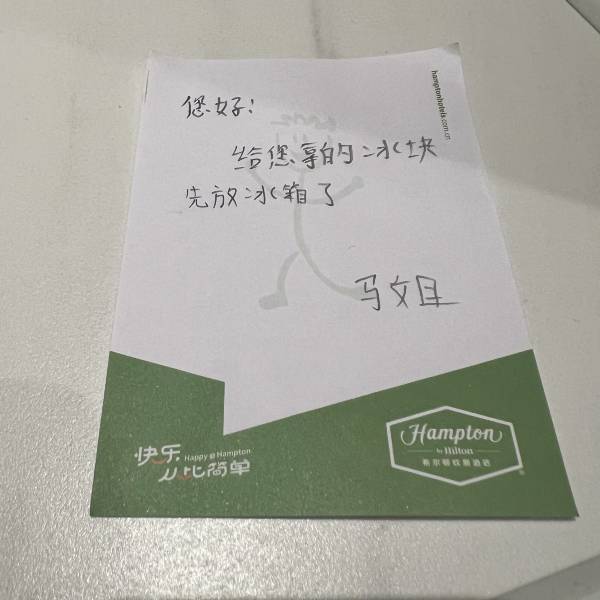 hamptonhotels.com.cn
您好!
给您拿的冰块
先放冰箱了
马文
快乐 Happy @ Hampton
从此简单
Hampton
by Hilton
希尔顿欢朋酒店